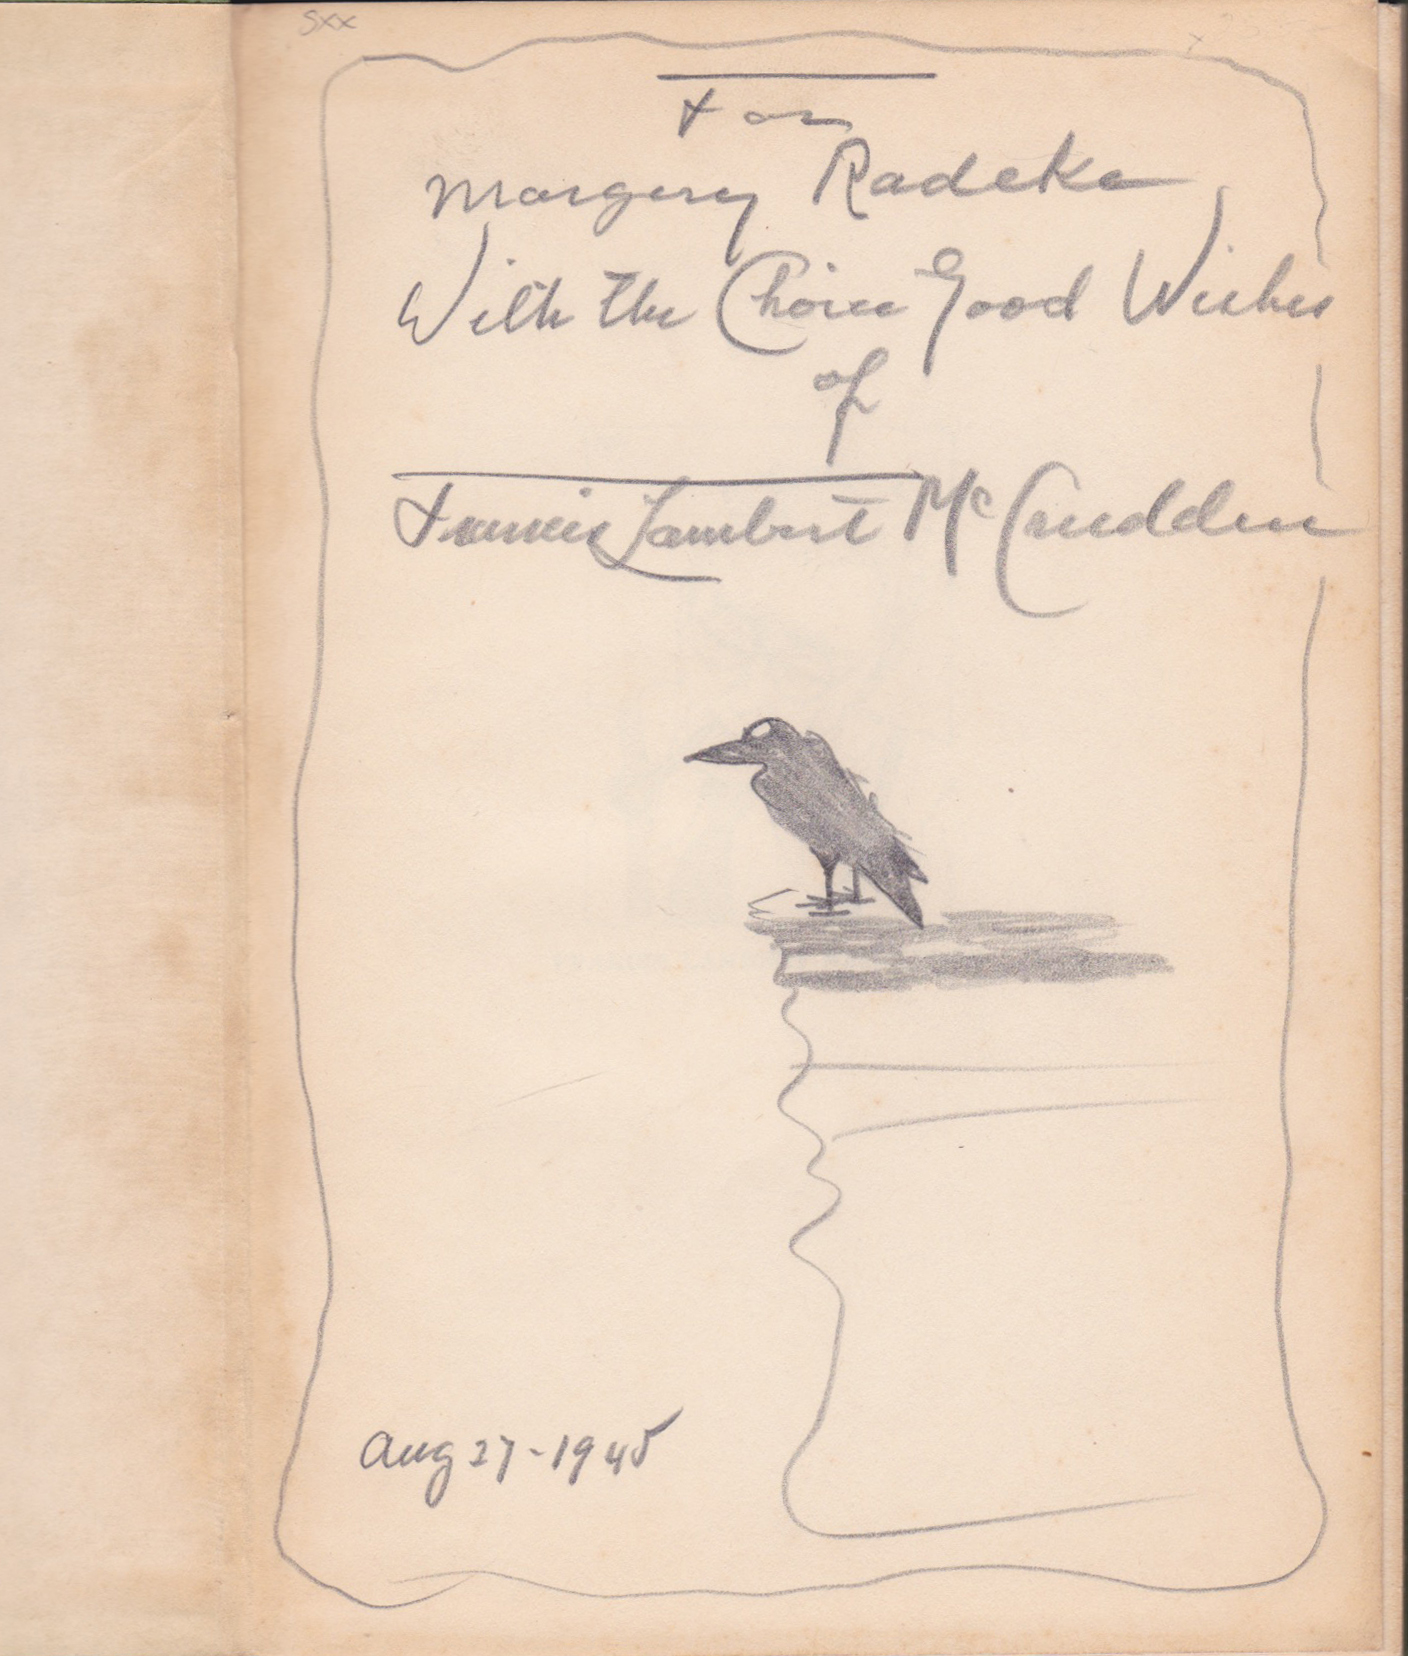 sxx
For
Margery Radeke
With the Choice Good Wishes
of
Francis Lambert McCrudden
Aug 27-1945